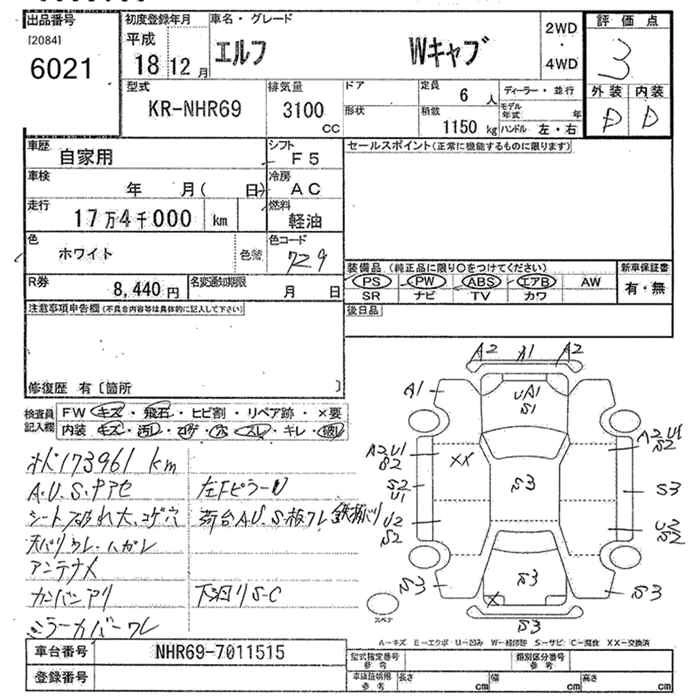 出品番号
[2084]
6021
初度登録年月
平成
18 12月
車名・グレード
エルフ Wキャブ
2WD
・
4WD
評価点
3
外装 内装
D D
型式
KR-NHR69
排気量
3100
CC
ドア
形状
定員
6 人
積載
1150 kg
ディーラー・並行
モデル年式 年
ハンドル 左・右
車歴
自家用
シフト
F5
車検
年 月( 日)
冷房
AC
走行
17万4千000 km
燃料
軽油
色
ホワイト
色替
色コード
729
R券
8,440円
名変通知期限
月 日
セールスポイント(正常に機能するものに限ります)
装備品 (純正品に限り○をつけてください)
PS PW ABS エアB AW
SR ナビ TV カワ
新車保証書
有・無
後日品
注意事項申告欄(不具合内容等は具体的に記入して下さい)
修復歴 有〔箇所 〕
検査員記入欄
FW キズ・飛石・ヒビ割・リペア跡・×要
内装 キズ・汚レ・コゲ・穴・スレ・キレ・破レ
メ 173961 km
A.U.S.サアセ 左Fピラーひ
シート破れ大、コゲ穴 荷台A.U.S.板ワレ 鉄板バリ
ワレ・ハガレ
アンテナ×
カンバンアリ 下回りS-C
ミラーカバーワレ
A2 A1 A2
A1
UA1
S1
A2U1
S2
XX
A2U1
S2
S2
U1
S3
S3
U2
S2
U2
S2
S3
S3
X
S3
S3
スペア
A-キズ E-エクボ U-凹み W-板修跡 S-サビ C-腐食 XX-交換済
車台番号
NHR69-7011515
登録番号
型式指定番号
参考
類別区分番号
参考
車検証期限
参考
長さ cm
幅 cm
高さ cm